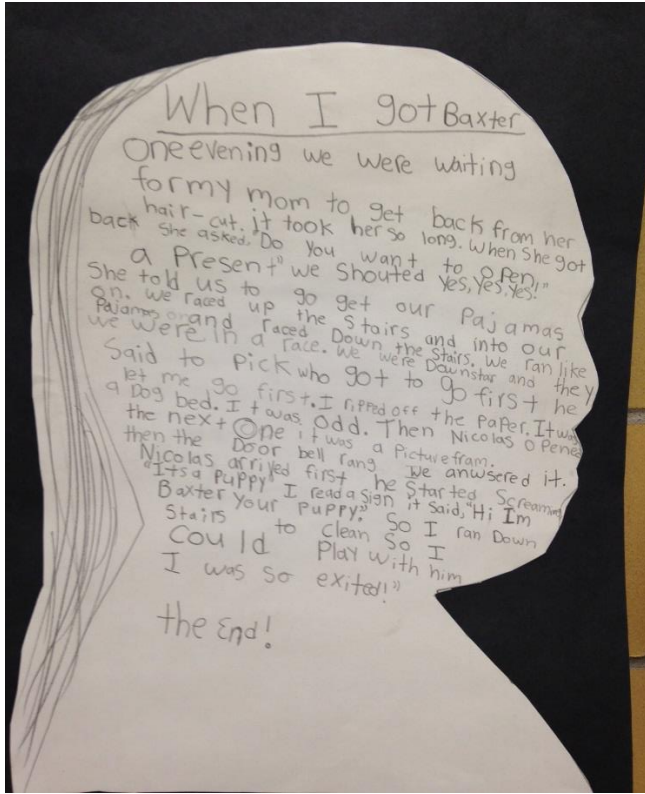 When I got Baxter
One evening we were waiting
for my mom to get back from her
hair-cut. it took her so long. When she got
back she asked, "Do You want to open
a Present" we shouted Yes, Yes, Yes!"
She told us to go get our Pajamas
on. We raced up the Stairs and into our
Pajamas and raced Down the Stairs. We ran like
we were in a race. We were Downstar and they
Said to Pick who got to go first he
let me go first. I ripped off the Paper. It was
a Dog bed. It was odd. Then Nicolas opened
the next One it was a Picture fram.
then the Door bell rang we anwsered it.
Nicolas arrived first he Started Screaming
"Its a Puppy" I read a sign it Said, "Hi Im
Baxter Your Puppy." So I ran Down
Stairs to clean So I
Could Play with him
I was so exited!"
the End!